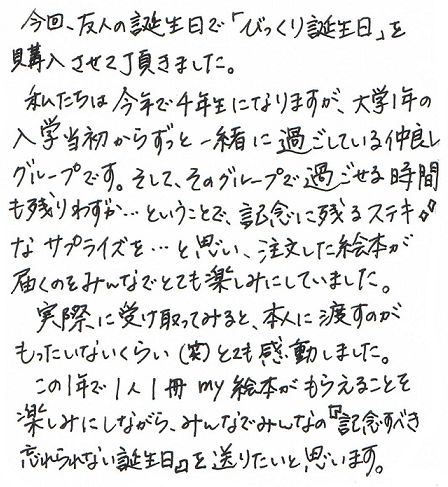 今回、友人の誕生日で「びっくり誕生日」を
購入させて頂きました。
私たちは今年で4年生になりますが、大学1年の
入学当初からずっと一緒に過ごしている仲良し
グループです。そして、そのグループで過ごせる時間
も残りわずか…ということで、記念に残るステキ
なサプライズを…と思い、注文した絵本が
届くのをみんなでとても楽しみにしていました。
実際に受け取ってみると、本人に渡すのが
もったいないくらい(笑)とても感動しました。
この1年で1人1冊my絵本がもらえることを
楽しみにしながら、みんなでみんなの『記念すべき
忘れられない誕生日』を送りたいと思います。